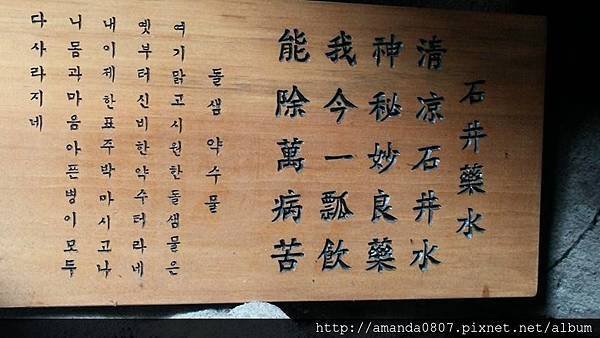 石井藥水
清凉石井水
神秘妙良藥
我今一瓢飮
能除萬病苦
돌샘 약수물
여기맑고시원한돌샘물은
옛부터신비한약수터라네
내이제한표주박마시고나
니몸과마음아픈병이모두
다사라지네
http://amanda0807.pixnet.net/album